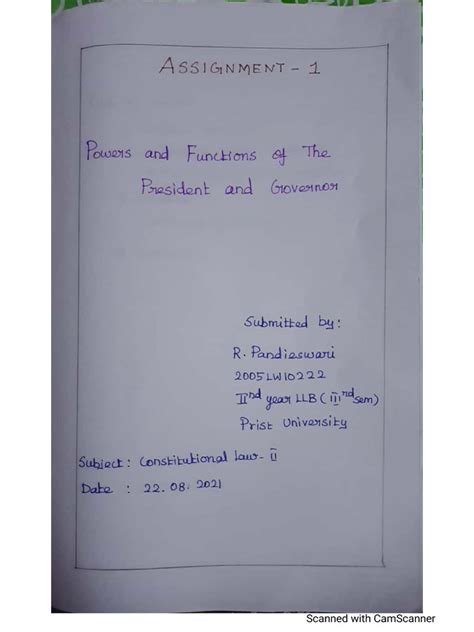 ASSIGNMENT - 1
Powers and Functions of The
President and Governor
Submitted by:
R. Pandieswari
2005LW10222
IInd year LLB (IIInd sem)
Prist University
Subject: Constitutional law- II
Date : 22.08.2021
Scanned with CamScanner